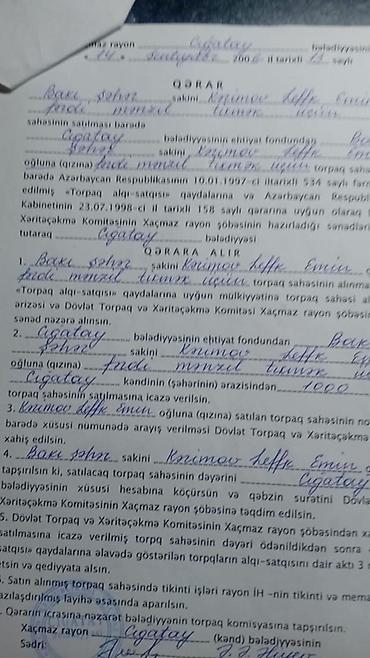 maz rayon Cığatay bələdiyyəsini
« 14 » sentyabr 2006 il tarixli 13 saylı
QƏRAR
Bakı şəhər sakini Kərimov Leffk Emin
fərdi mənzil tikmək üçün
sahəsinin satılması barədə
Cığatay bələdiyyəsinin ehtiyat fondundan Ba
şəhər sakini Kərimov Leffk Em
oğluna (qızına) fərdi mənzil tikmək üçün torpaq saha
barədə Azərbaycan Respublikasının 10.01.1997-ci il tarixli 534 saylı fərm
edilmiş «Torpaq alqı-satqısı» qaydalarına və Azərbaycan Respubl
Kabinetinin 23.07.1998-ci il tarixli 158 saylı qərarına uyğun olaraq
Xəritəçəkmə Komitəsinin Xaçmaz rayon şöbəsinin hazırladığı sənədləri
tutaraq Cığatay bələdiyyəsi
QƏRARA ALIR
1. Bakı şəhər sakini Kərimov Leffk Emin
fərdi mənzil tikmək üçün torpaq sahəsinin alınma
«Torpaq alqı-satqısı» qaydalarına uyğun mülkiyyətinə torpaq sahəsi al
ərizəsi və Dövlət Torpaq və Xəritəçəkmə Komitəsi Xaçmaz rayon şöbəsin
sənəd nəzərə alınsın.
2. Cığatay bələdiyyəsinin ehtiyat fondundan Bak
şəhər sakini Kərimov Leffk Em
oğluna (qızına) fərdi mənzil tikmək üç
Cığatay kəndinin (şəhərinin) ərazisindən 1000
torpaq sahəsinin satılmasına icazə verilsin.
3. Kərimov Leffk Emin oğluna (qızına) satılan torpaq sahəsinin no
barədə xüsusi nümunədə arayış verilməsi Dövlət Torpaq və Xəritəçəkmə
xahiş edilsin.
4. Bakı şəhər sakini Kərimov Leffk Emin
tapşırılsın ki, satılacaq torpaq sahəsinin dəyərini Cığatay
bələdiyyəsinin xüsusi hesabına köçürsün və qəbzin surətini Dövlə
Xəritəçəkmə Komitəsinin Xaçmaz rayon şöbəsinə təqdim edilsin.
5. Dövlət Torpaq və Xəritəçəkmə Komitəsinin Xaçmaz rayon şöbəsindən xa
satılmasına icazə verilmiş torpq sahəsinin dəyəri ödənildikdən sonra
satqısı» qaydalarına əlavədə göstərilən torpqların alqı-satqısını dair aktı 3
etsin və qediyyata alsın.
. Satın alınmış torpaq sahəsində tikinti işləri rayon İH -nin tikinti və mema
azılaşdırılmış layihə əsasında aparılsın.
. Qərarın icrasına nəzarət bələdiyyənin torpaq komisyasına tapşırılsın.
Xaçmaz rayon Cığatay (kənd) bələdiyyəsinin
Sədri: